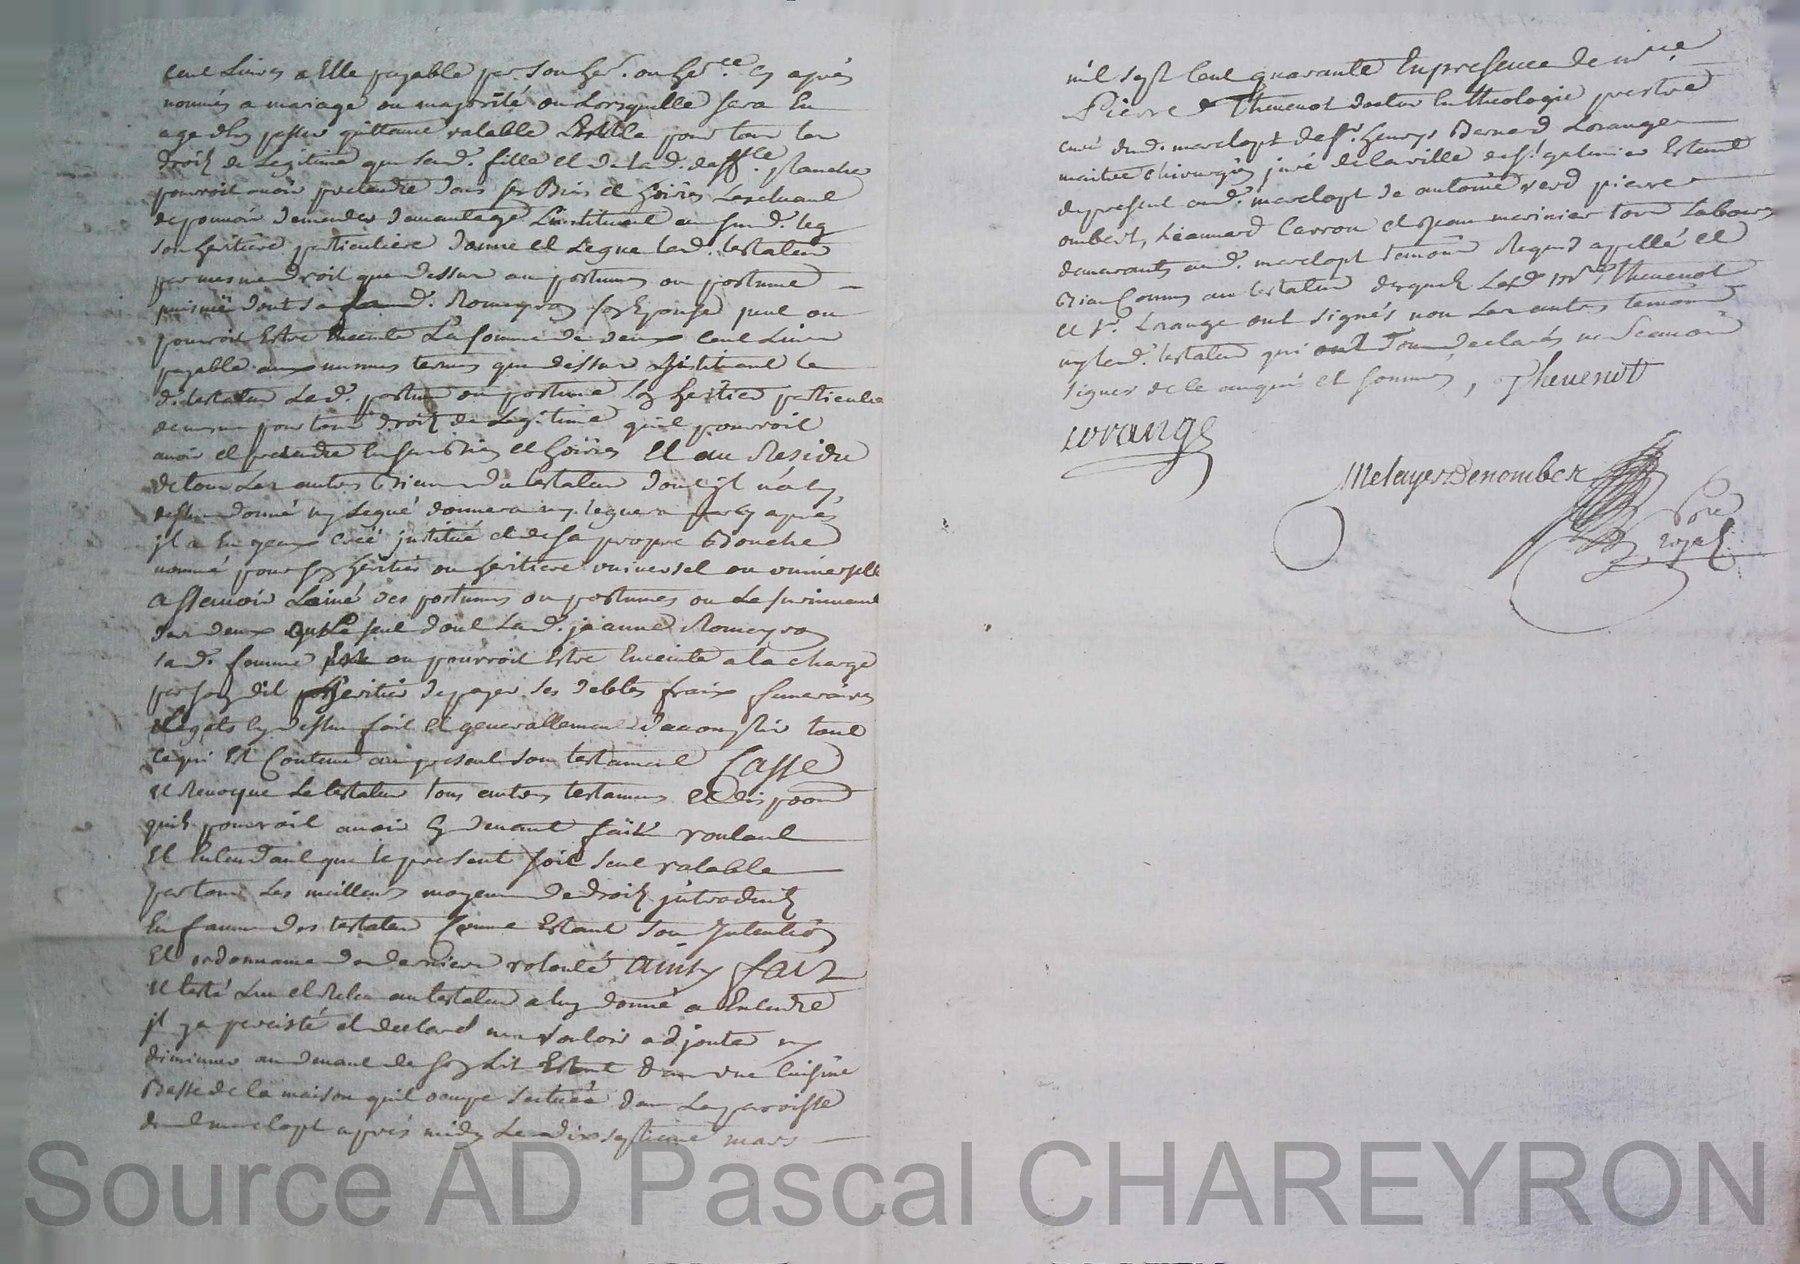 cent Livres a Elle payable par son her. ou her.ee cy après
nommés a mariage ou majorité ou Lorsquelle sera En
age den passer quittance valable pour tous les
droits de Legitime que sad. fille et de lad. deff.te planche
pourroit avoir pretendre dans ses Biens et hoiries Lexcluant
de pouvoir demander davantage Linstituant en sond. leg
son heritiere particuliere donne et Legue led. testateur
par mesme droit que dessus au postume ou postume
dont sa lad. Romeyron son Epouse peut ou
pourroit Estre Enceinte La somme de deux Cent Livres
payable aux mesmes termes que dessus Instituant le
d. testateur Led. postume ou postume son heritier particulier
de mesme pour tous droits de Legitime quil pourroit
avoir et pretendre En ses Biens et hoiries Et au Residu
de tous Les autres Biens du testateur dont jl n'a cy
dessus donné ny Legué donnera ny leguera par cy après
jl a de creé jnstitué et de sa propre Bouche
nommé pour son heritier ou heritiere universel ou universelle
assavoir L'ainé des postumes ou postumes ou Le survivant
des deux ou Le seul dont Lad. jeanne Romeyron
sad. femme est ou pourroit Estre Enceinte a la charge
par son dit heritier de payer ses debtes fraix funeraires
Legats cy dessus fait et generallement d'accomplir tout
ce qui Est Contenu au present son testament Casse
et Revoque Le testateur tous autres testamens et dispoon
quil pourroit avoir cy devant fait voulant
Et Entendant que le present soit seul valable
par tous Les meilleurs moyens de droit jntroduits
En faveur des testateurs Comme Estant son Intention
Et ordonnance de derniere volonté ainsy fait
et testé Leu et Releu au testateur a luy donné a Entendre
jl y a percisté et declaré ne vouloir adjouter ny
diminuer au devant de son Lit Estant dans une Cuisine
Basse de la maison quil occupe scituée dans La paroisse
dud. marclopt après midy Le dix septieme mars
mil sept Cent quarante En presence de m.re
Pierre Thevenot docteur En theologie prestre
curé dud. marclopt de s.r henrys Bernard Lorange
maitre chirurgien juré de la ville de s.t galmier Estant
de present aud. marclopt de antoine verd pierre
ombert, Leonnard Carron et jean marinier tous Laboureurs
demeurants aud. marclopt temoins Requis appellé et
Bien Connus au testateur desquels Led. m.re Thevenot
et s.r Lorange ont signés non Les autres temoins
ny led. testateur qui ont tous declarés ne Scavoir
signer de ce enquis et sommés, Thevenot
Lorange
Metayer Denombet
No.re
royal
Source AD Pascal CHAREYRON